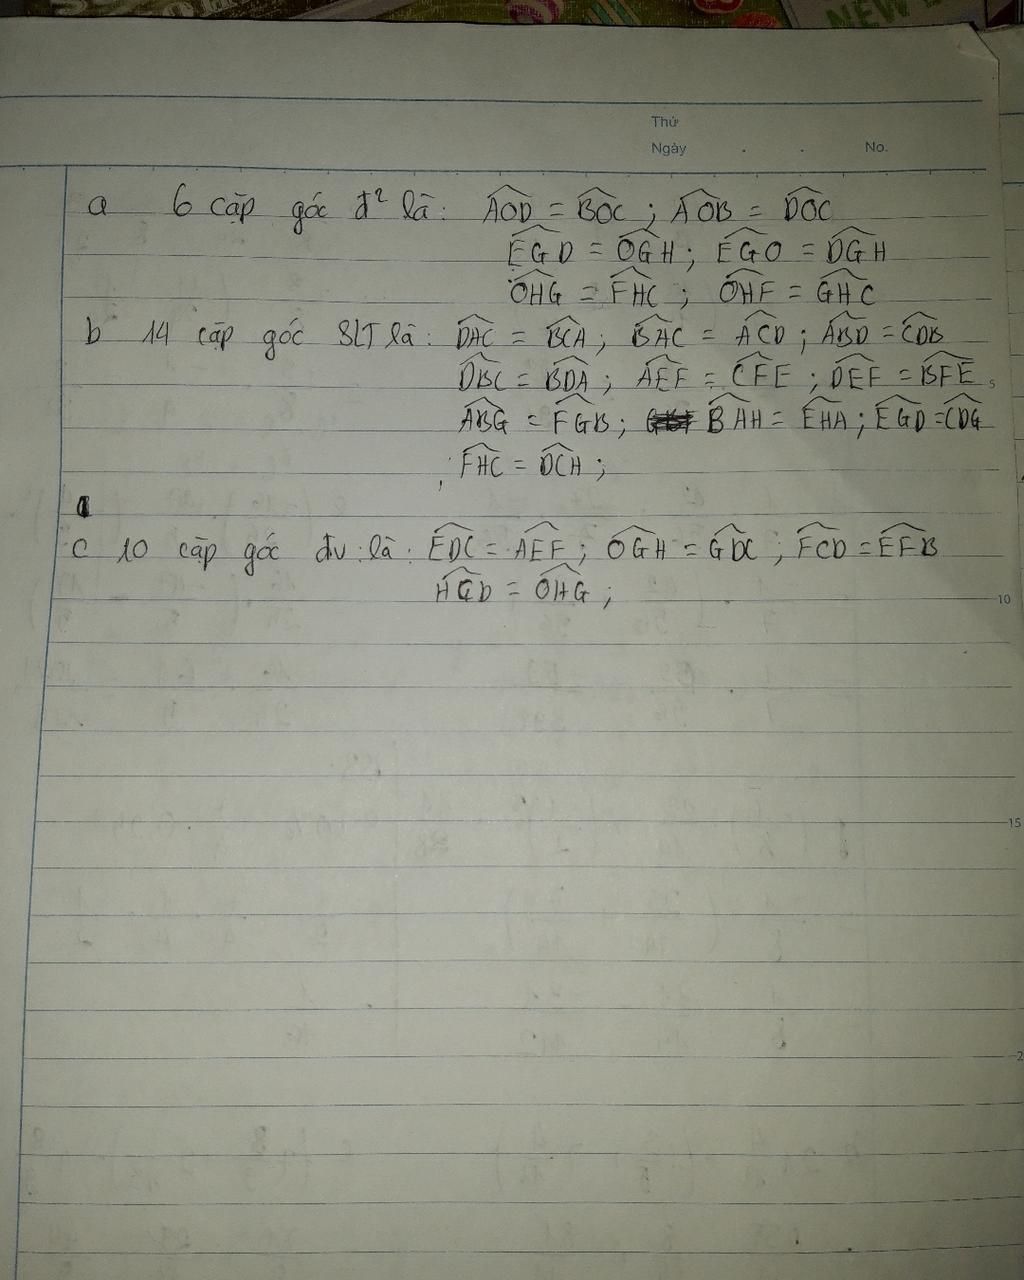 NEW
Thứ
Ngày . . No.
a 6 cặp góc đ² là: AOD = BOC ; AOB = DOC
EGD = OGH ; EGO = DGH
OHG = FHC ; OHF = GHC
b 14 cặp góc SLT là: DAC = BCA ; BAC = ACD ; ABD = CDB
DBC = BDA ; AEF = CFE ; DEF = BFE
5
ABG = FGB ; BAH = EHA ; EGD = CDG
FHC = DCH ;
c 10 cặp góc đv là: EDC = AEF ; OGH = GDC ; FCD = EFB
HGD = OHG ;
10
15
2